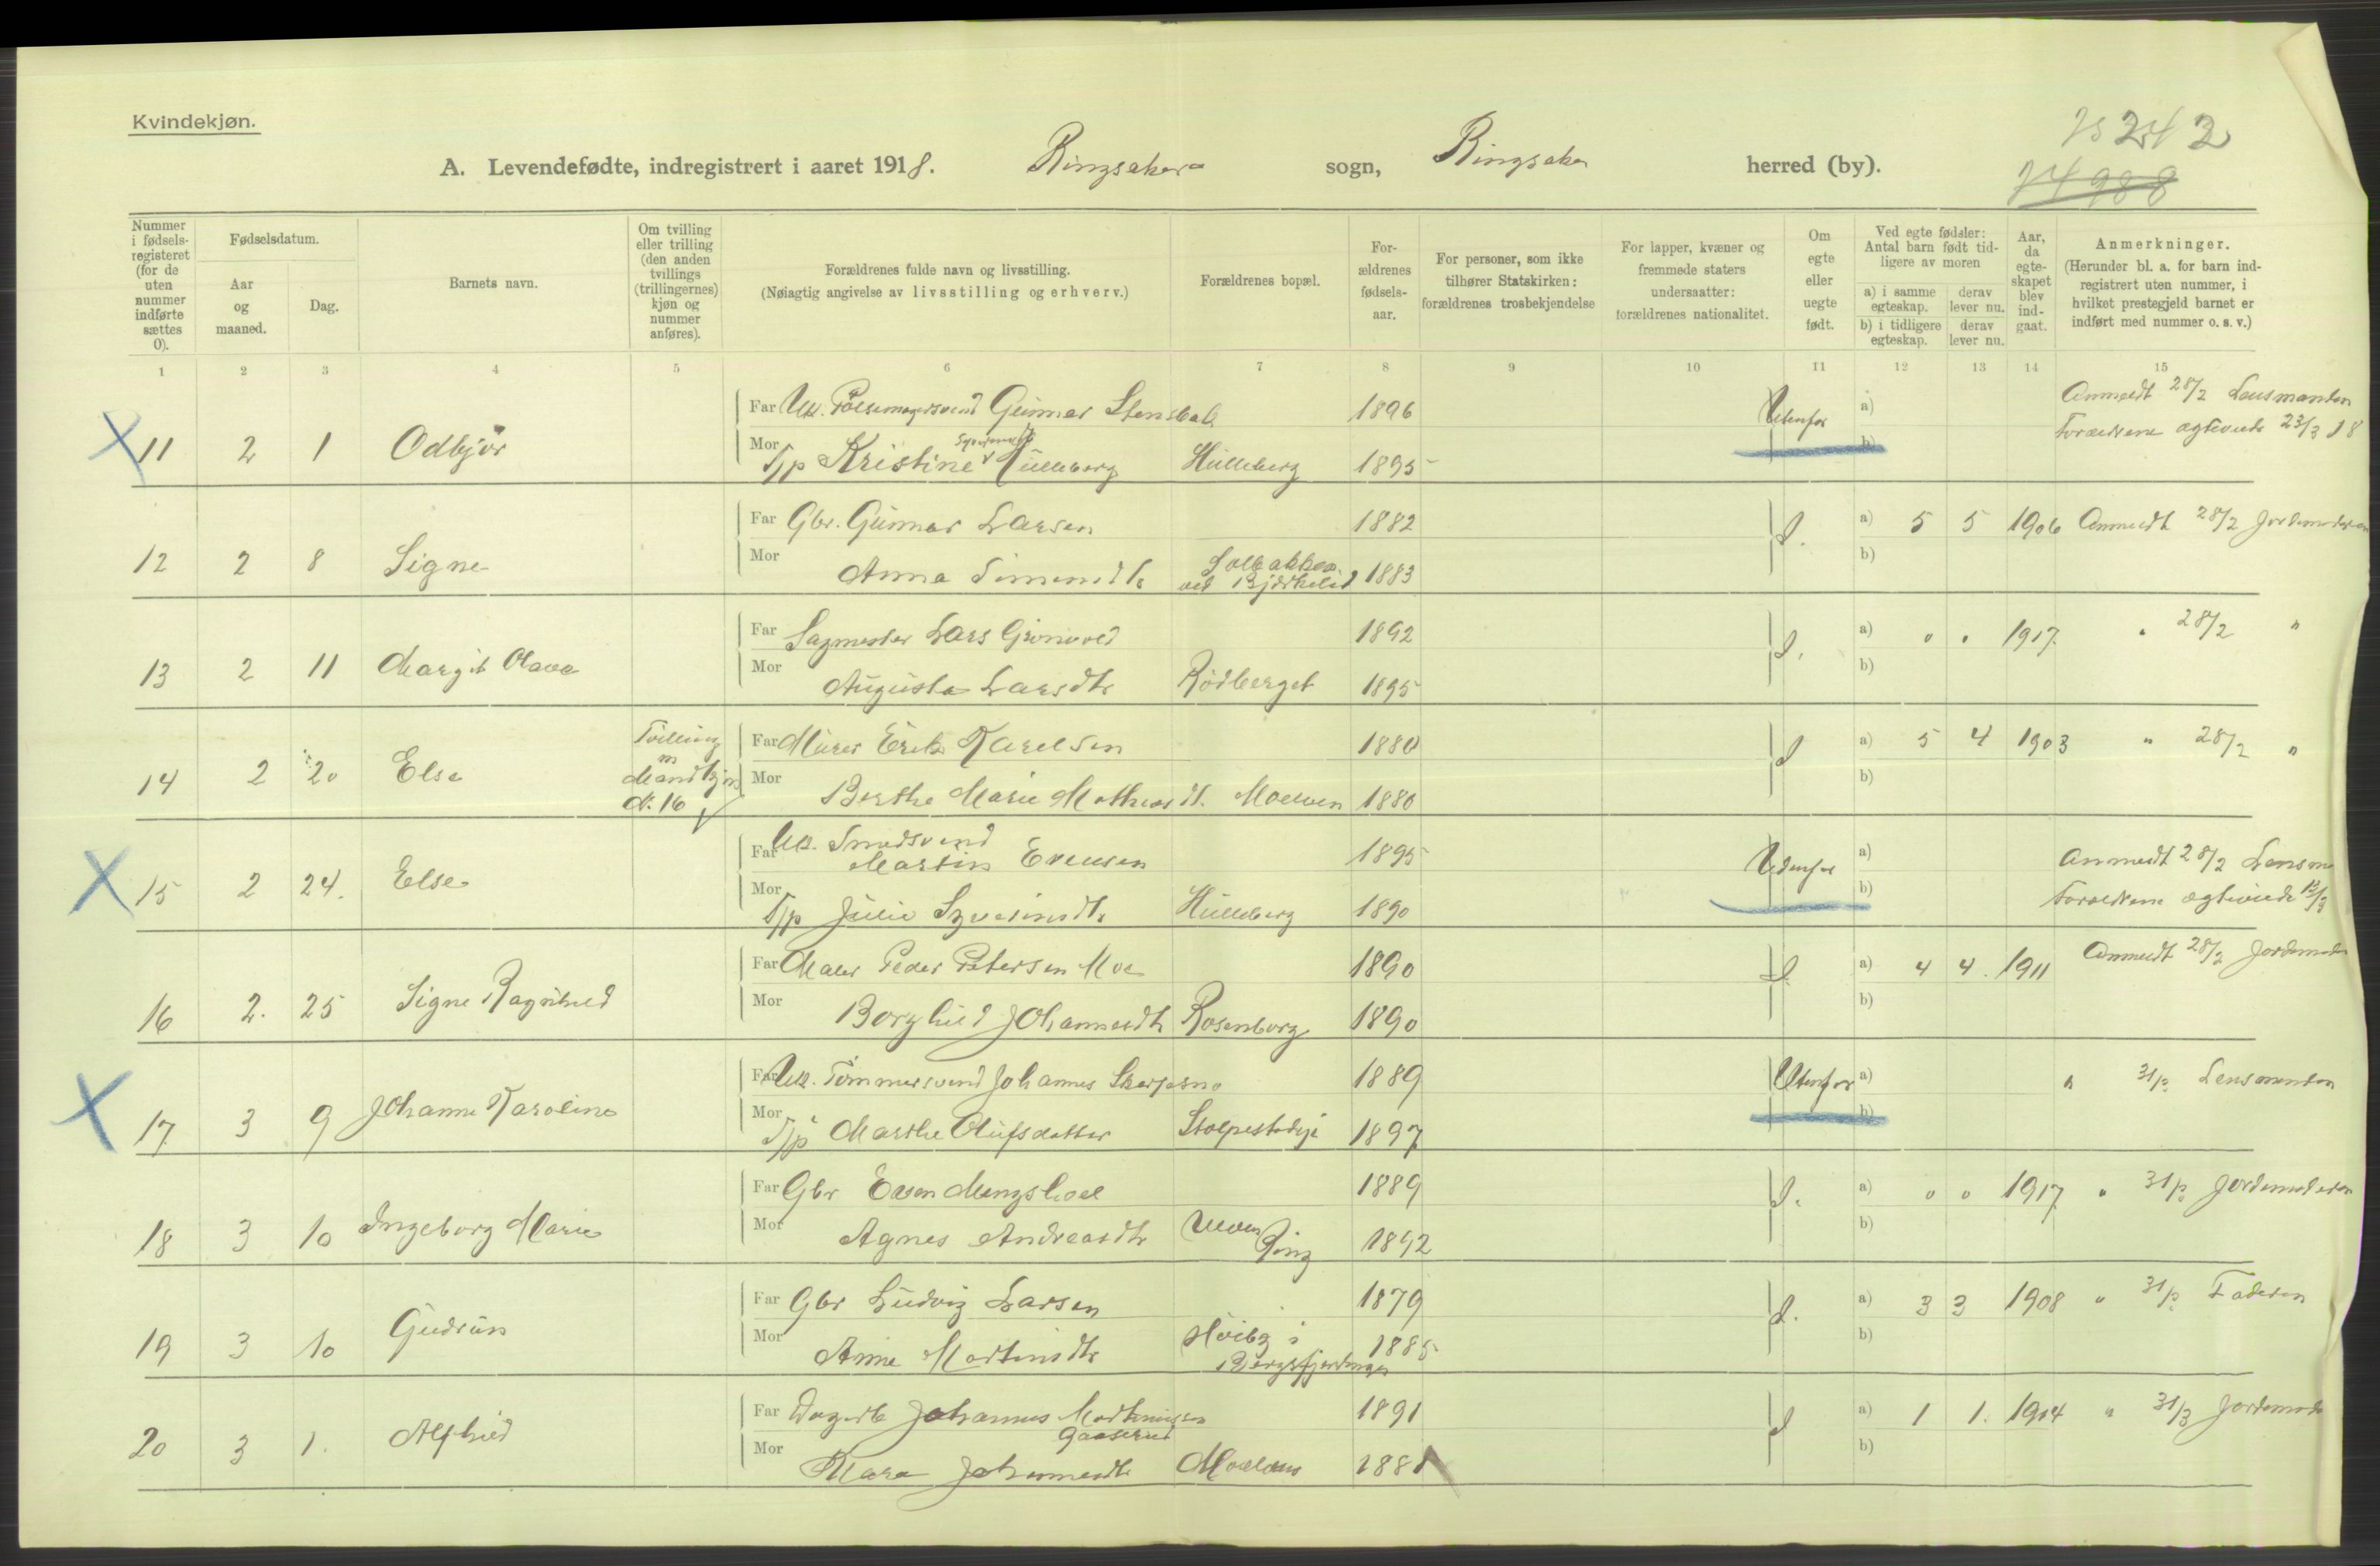 Kvindekjøn.
A. Levendefødte, indregistrert i aaret 1918. Ringsaker sogn, Ringsaker herred (by).
242
74988
Nummer i fødselsregisteret (for de uten nummer indførte sættes 0).
Fødselsdatum.
Aar og maaned.
Dag.
Barnets navn.
Om tvilling eller trilling (den anden tvillings (trillingernes) kjøn og nummer anføres).
Forældrenes fulde navn og livsstilling.
(Nøiagtig angivelse av livsstilling og erhverv.)
Forældrenes bopæl.
Forældrenes fødselsaar.
For personer, som ikke tilhører Statskirken: forældrenes trosbekjendelse
For lapper, kvæner og fremmede staters undersaatter: forældrenes nationalitet.
Om egte eller uegte født.
Ved egte fødsler: Antal barn født tidligere av moren
a) i samme egteskap. derav lever nu.
b) i tidligere egteskap. derav lever nu.
Aar, da egteskapet blev indgaat.
Anmerkninger.
(Herunder bl. a. for barn indregistrert uten nummer, i hvilket prestegjeld barnet er indført med nummer o. s. v.)
1 2 3 4 5 6 7 8 9 10 11 12 13 14 15
Far Uk. Pølsemagersvend Gunnar Stensbak 1896 Utenfor a) Anmeldt 28/2 Lensmanden
11 2 1 Odbjør Mor T/p Kristine Hulleberg Hulleberg 1895 b) Forældrene ægteviede 23/3 18
Far Gbr. Gunnar Larsen 1882 I. a) 5 5 1906 Anmeldt 28/2 Jordmoderen
12 2 8 Signe Mor Anna Simensdtr Solbakken ved Bjørkelid 1883 b)
Far Sagmester Lars Grønvold 1892 I. a) " " 1917. " 28/2 "
13 2 11 Margit Olava Mor Augusta Larsdtr Rødberget 1895 b)
Far Murer Erik Karelsen 1880 I a) 5 4 1903 " 28/2 "
14 2 20 Else Tvilling m Mandkjøn N. 16 Mor Berthe Marie Mathiasdt. Moelven 1880 b)
Far Uk. Smedsvend Martin Evensen 1895 Udenfor a) Anmeldt 28/2 Lensm
15 2 24. Else Mor T/p Julie Syverinsdtr Hulleberg 1890 b) Forældrene ægteviede
Far Maler Peder Petersen Moe 1890 I a) 4 4. 1911 Anmeldt 28/2 Jordmoder
16 2. 25 Signe Ragnhild Mor Borghild Johannesdtr Rosenborg 1890 b)
Far Uk. Tømmersvend Johannes Skarpsno 1889 Utenfor a) " 31/3 Lensmanden
17 3 9 Johanne Karoline Mor T/p Marthe Olufsdatter Stolpestadeje 1897 b)
Far Gbr Even Mengshoel 1889 I. a) " " 1917 " 31/3 Jordemoderen
18 3 10 Ingeborg Marie Mor Agnes Andreasdtr Ring 1892 b)
Far Gbr Ludvig Larsen 1879 I. a) 3 3 1908 " 31/3 Faderen
19 3 10 Gudrun Mor Anne Martinsdtr Høibg i Bergsfjerdingen 1885 b)
Far Johannes Martinusen Gaaserud 1891 I a) 1 1. 1914 " 31/3 Jordemode
20 3 1. Alfhild Mor Mara Johannesdtr Moelven 1881 b)